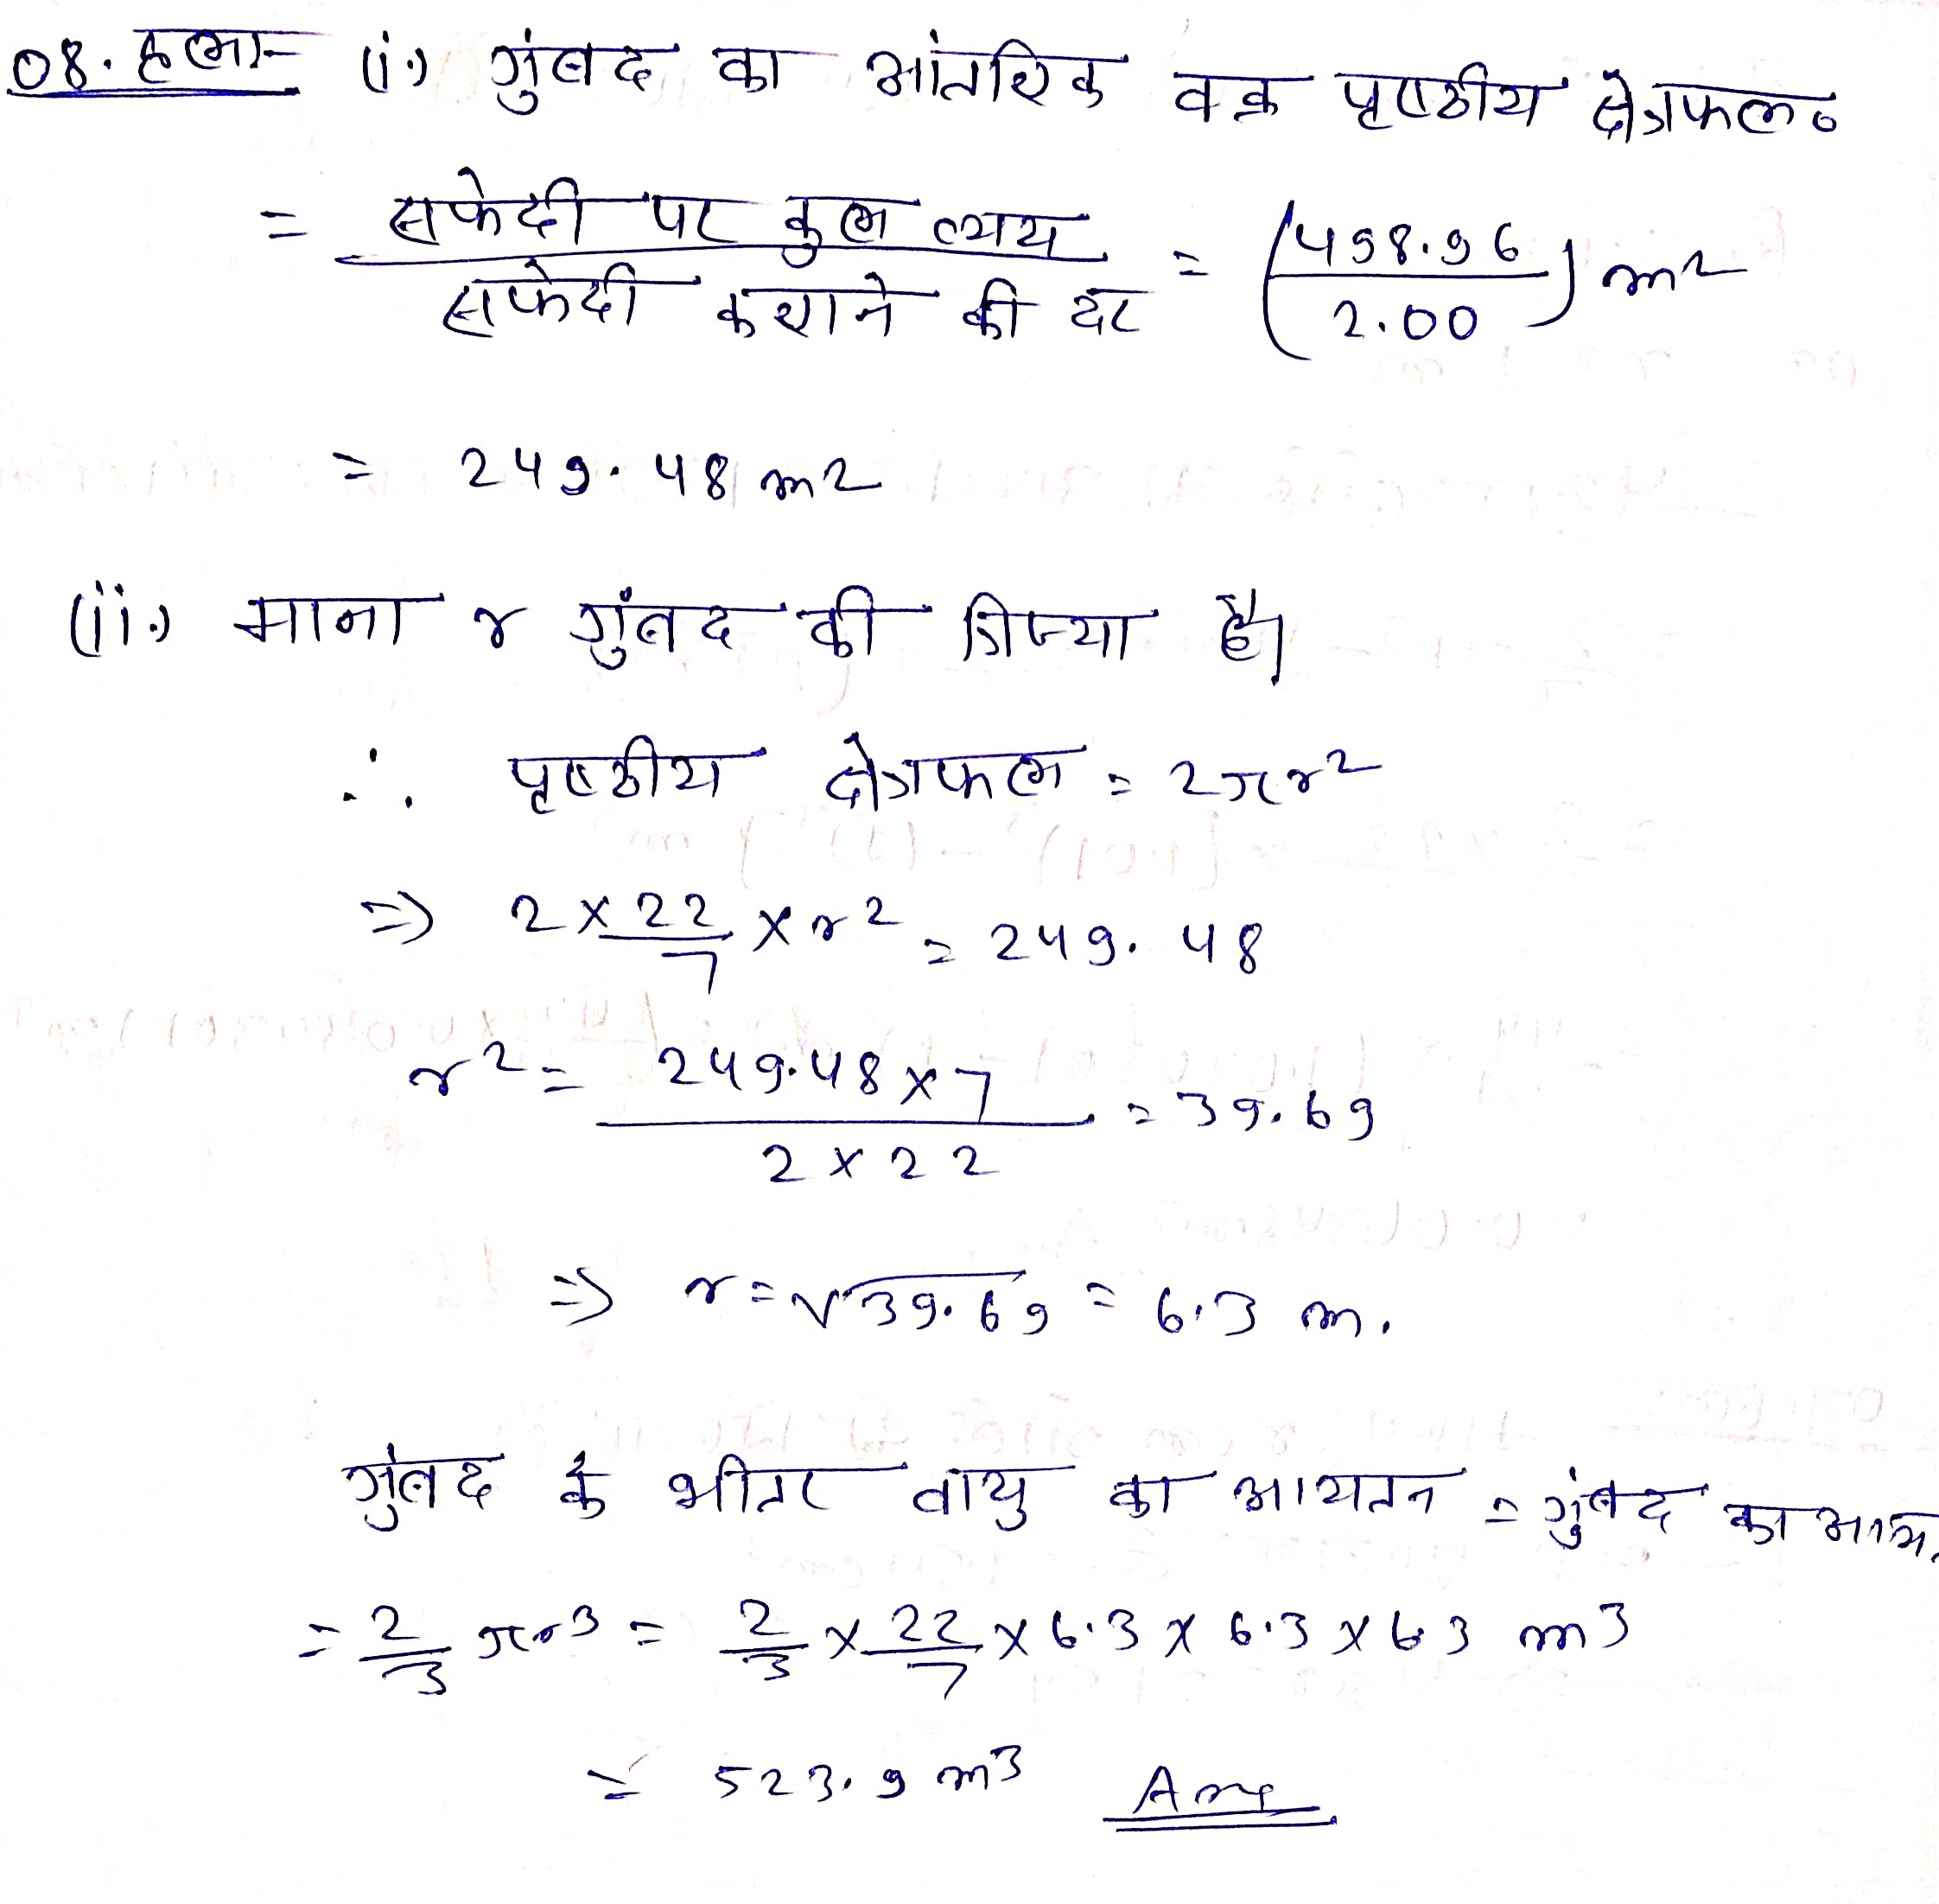 08. हल:- (i.) गुंबद का आंतरिक वक्र पृष्ठीय क्षेत्रफल०
= सफेदी पर कुल व्यय / सफेदी कराने की दर = (498.96 / 2.00) m2
= 249.48 m2
(ii.) माना r गुंबद की त्रिज्या है।
∴ पृष्ठीय क्षेत्रफल = 2πr2
=> 2 × 22/7 × r2 = 249.48
r2 = 249.48 × 7 / 2 × 22 = 39.69
=> r = √39.69 = 6.3 m.
गुंबद के भीतर वायु का आयतन = गुंबद का आय.
= 2/3 πr3 = 2/3 × 22/7 × 6.3 × 6.3 × 6.3 m3
= 523.9 m3 Ans